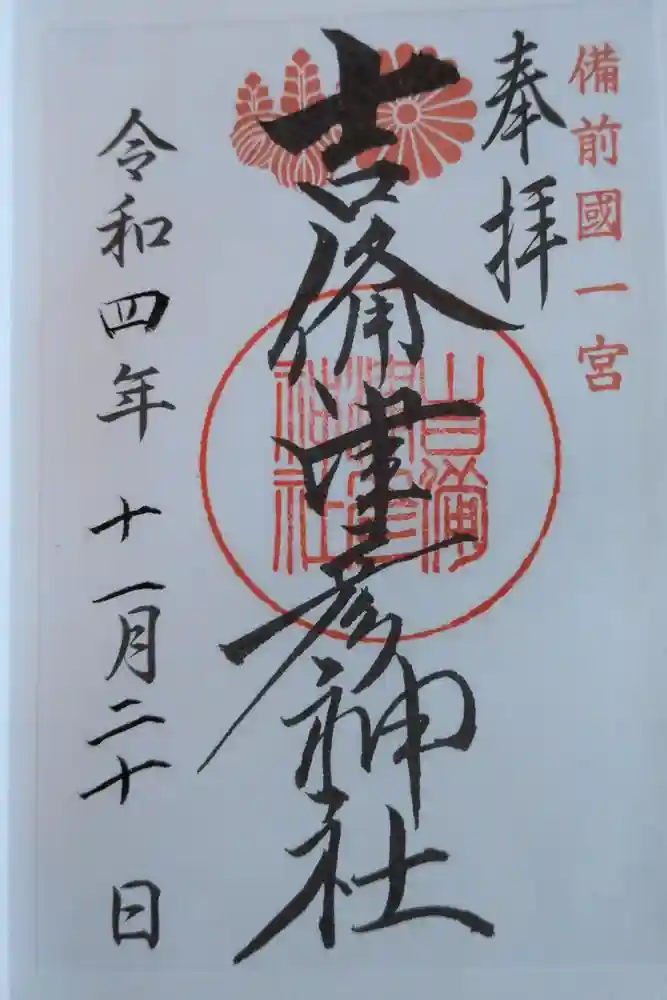 備前國一宮
奉拝
吉備津彦神社
吉備
津彦
神社
令和四年十一月二十日